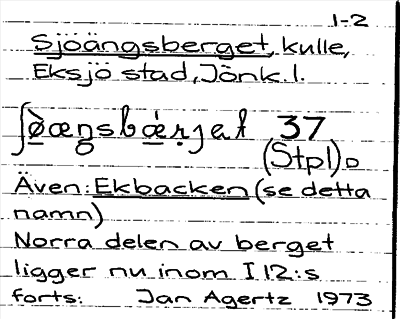 1-2
Sjöängsbergęt, kulle,
Eksjö stad, Jönk.l.
ʃø̀ængsbǽrjat 37
(Stpl)
Även: Ekbacken (se detta
namn)
Norra delen av berget
ligger nu inom I 12:s
forts: Jan Agertz 1973